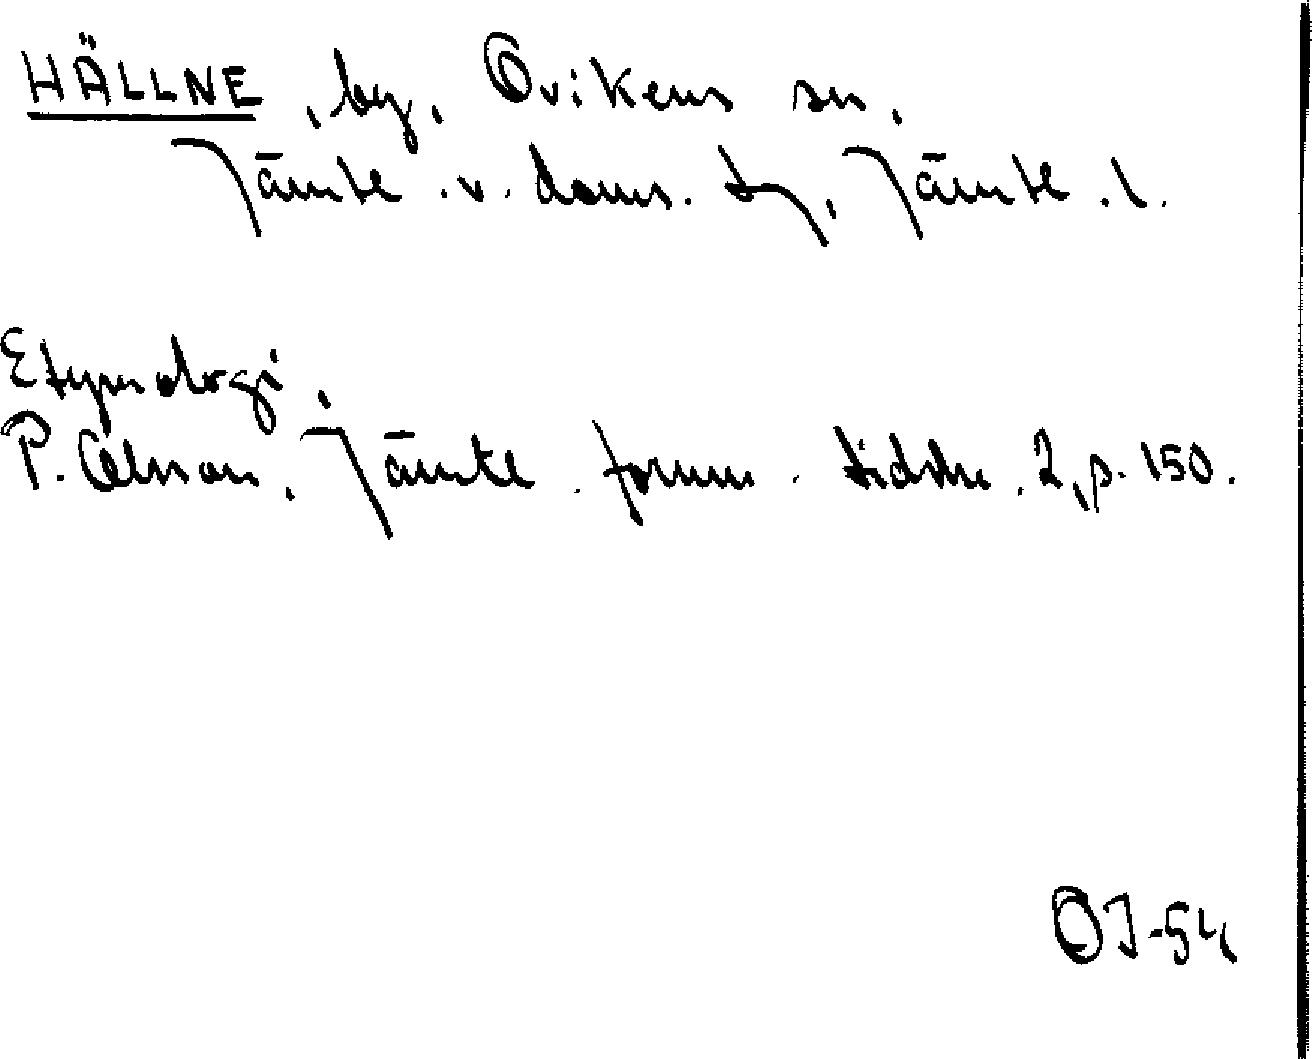 HÄLLNE, by, Ovikens sn,
Jämtl. v. doms. tg, Jämtl. l.
Etymologi,
P. Olsson, Jämtl. fornm. tidskr. 2, p. 150.
OJ-54